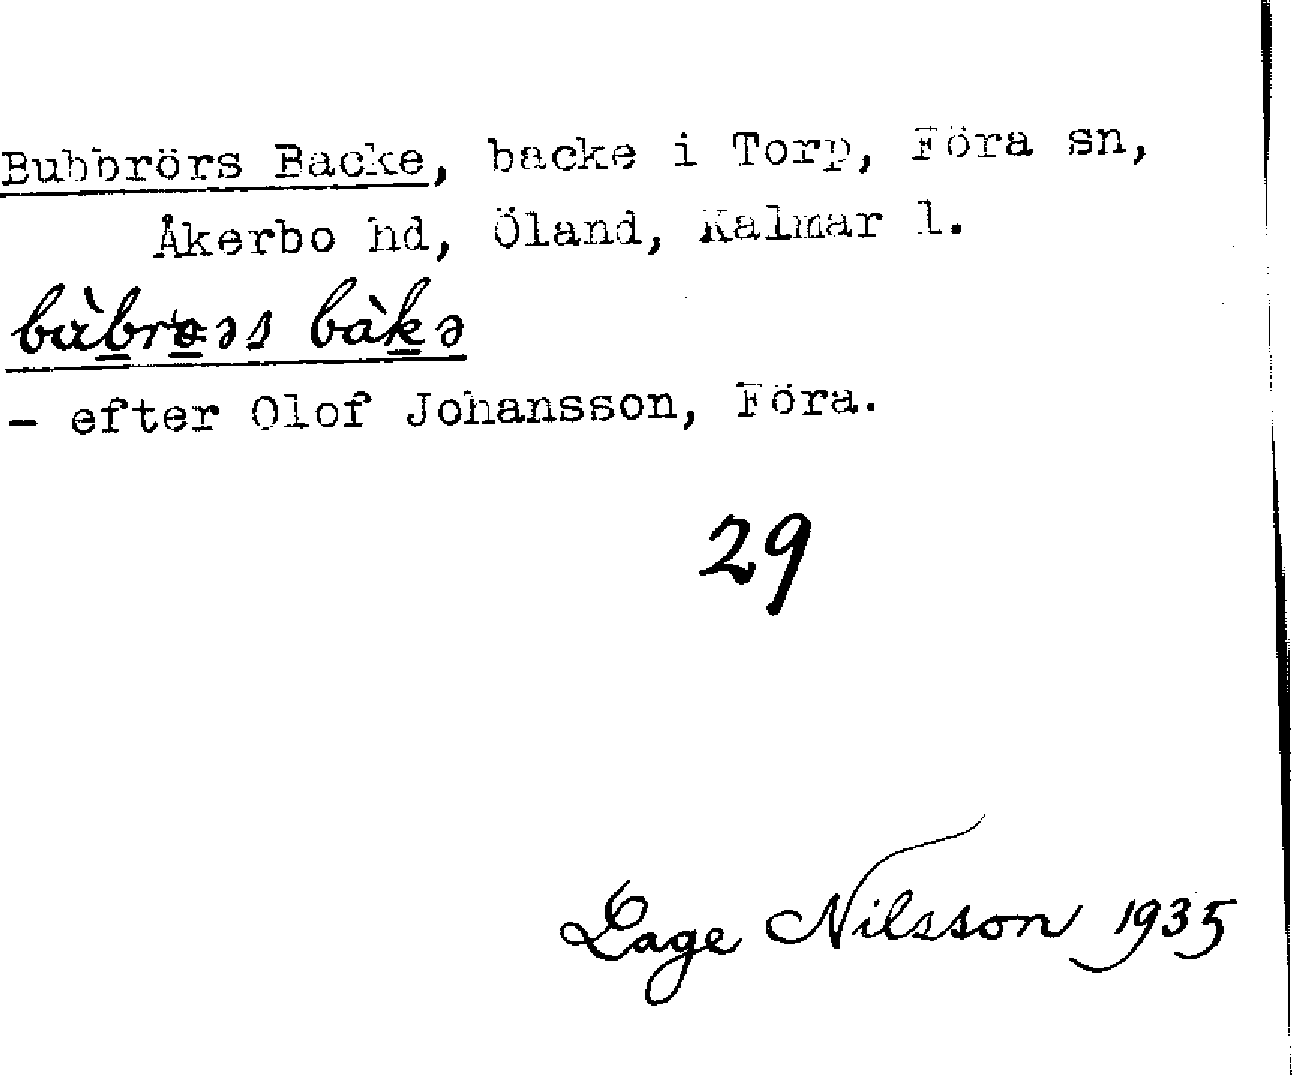 Bubbrörs Backe, backe i Torp, Föra sn,
Åkerbo hd, Öland, Kalmar l.
bàkə
- efter Olof Johansson, Föra.
29
Lage Nilsson 1935